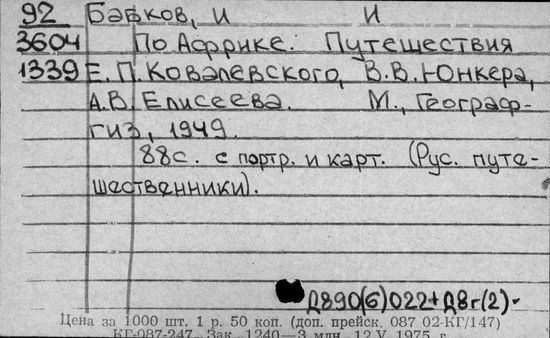 92 Бабков, И И
3604 По Африке. Путешествия
1339 Е.П. Ковалевского, В.В. Юнкера,
А.В. Елисеева. М., Географ-
гиз, 1949.
88с. с портр. и карт. (Рус. путе-
шественники).
Д890(6)022+Д8г(2)-
Цена за 1000 шт. 1 р. 50 коп. (доп. прейск. 087 02-КГ/147)
КГ-087-247. Зак. 1240—3 млн. 12.V.1975 г.